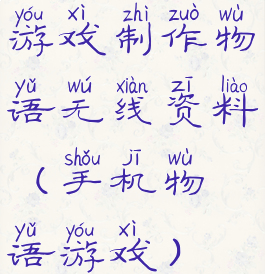 yóu xì zhì zuò wù
游戏制作物
yǔ wú xiàn zī liào
语无线资料
shǒu jī wù
(手机物
yǔ yóu xì
语游戏)